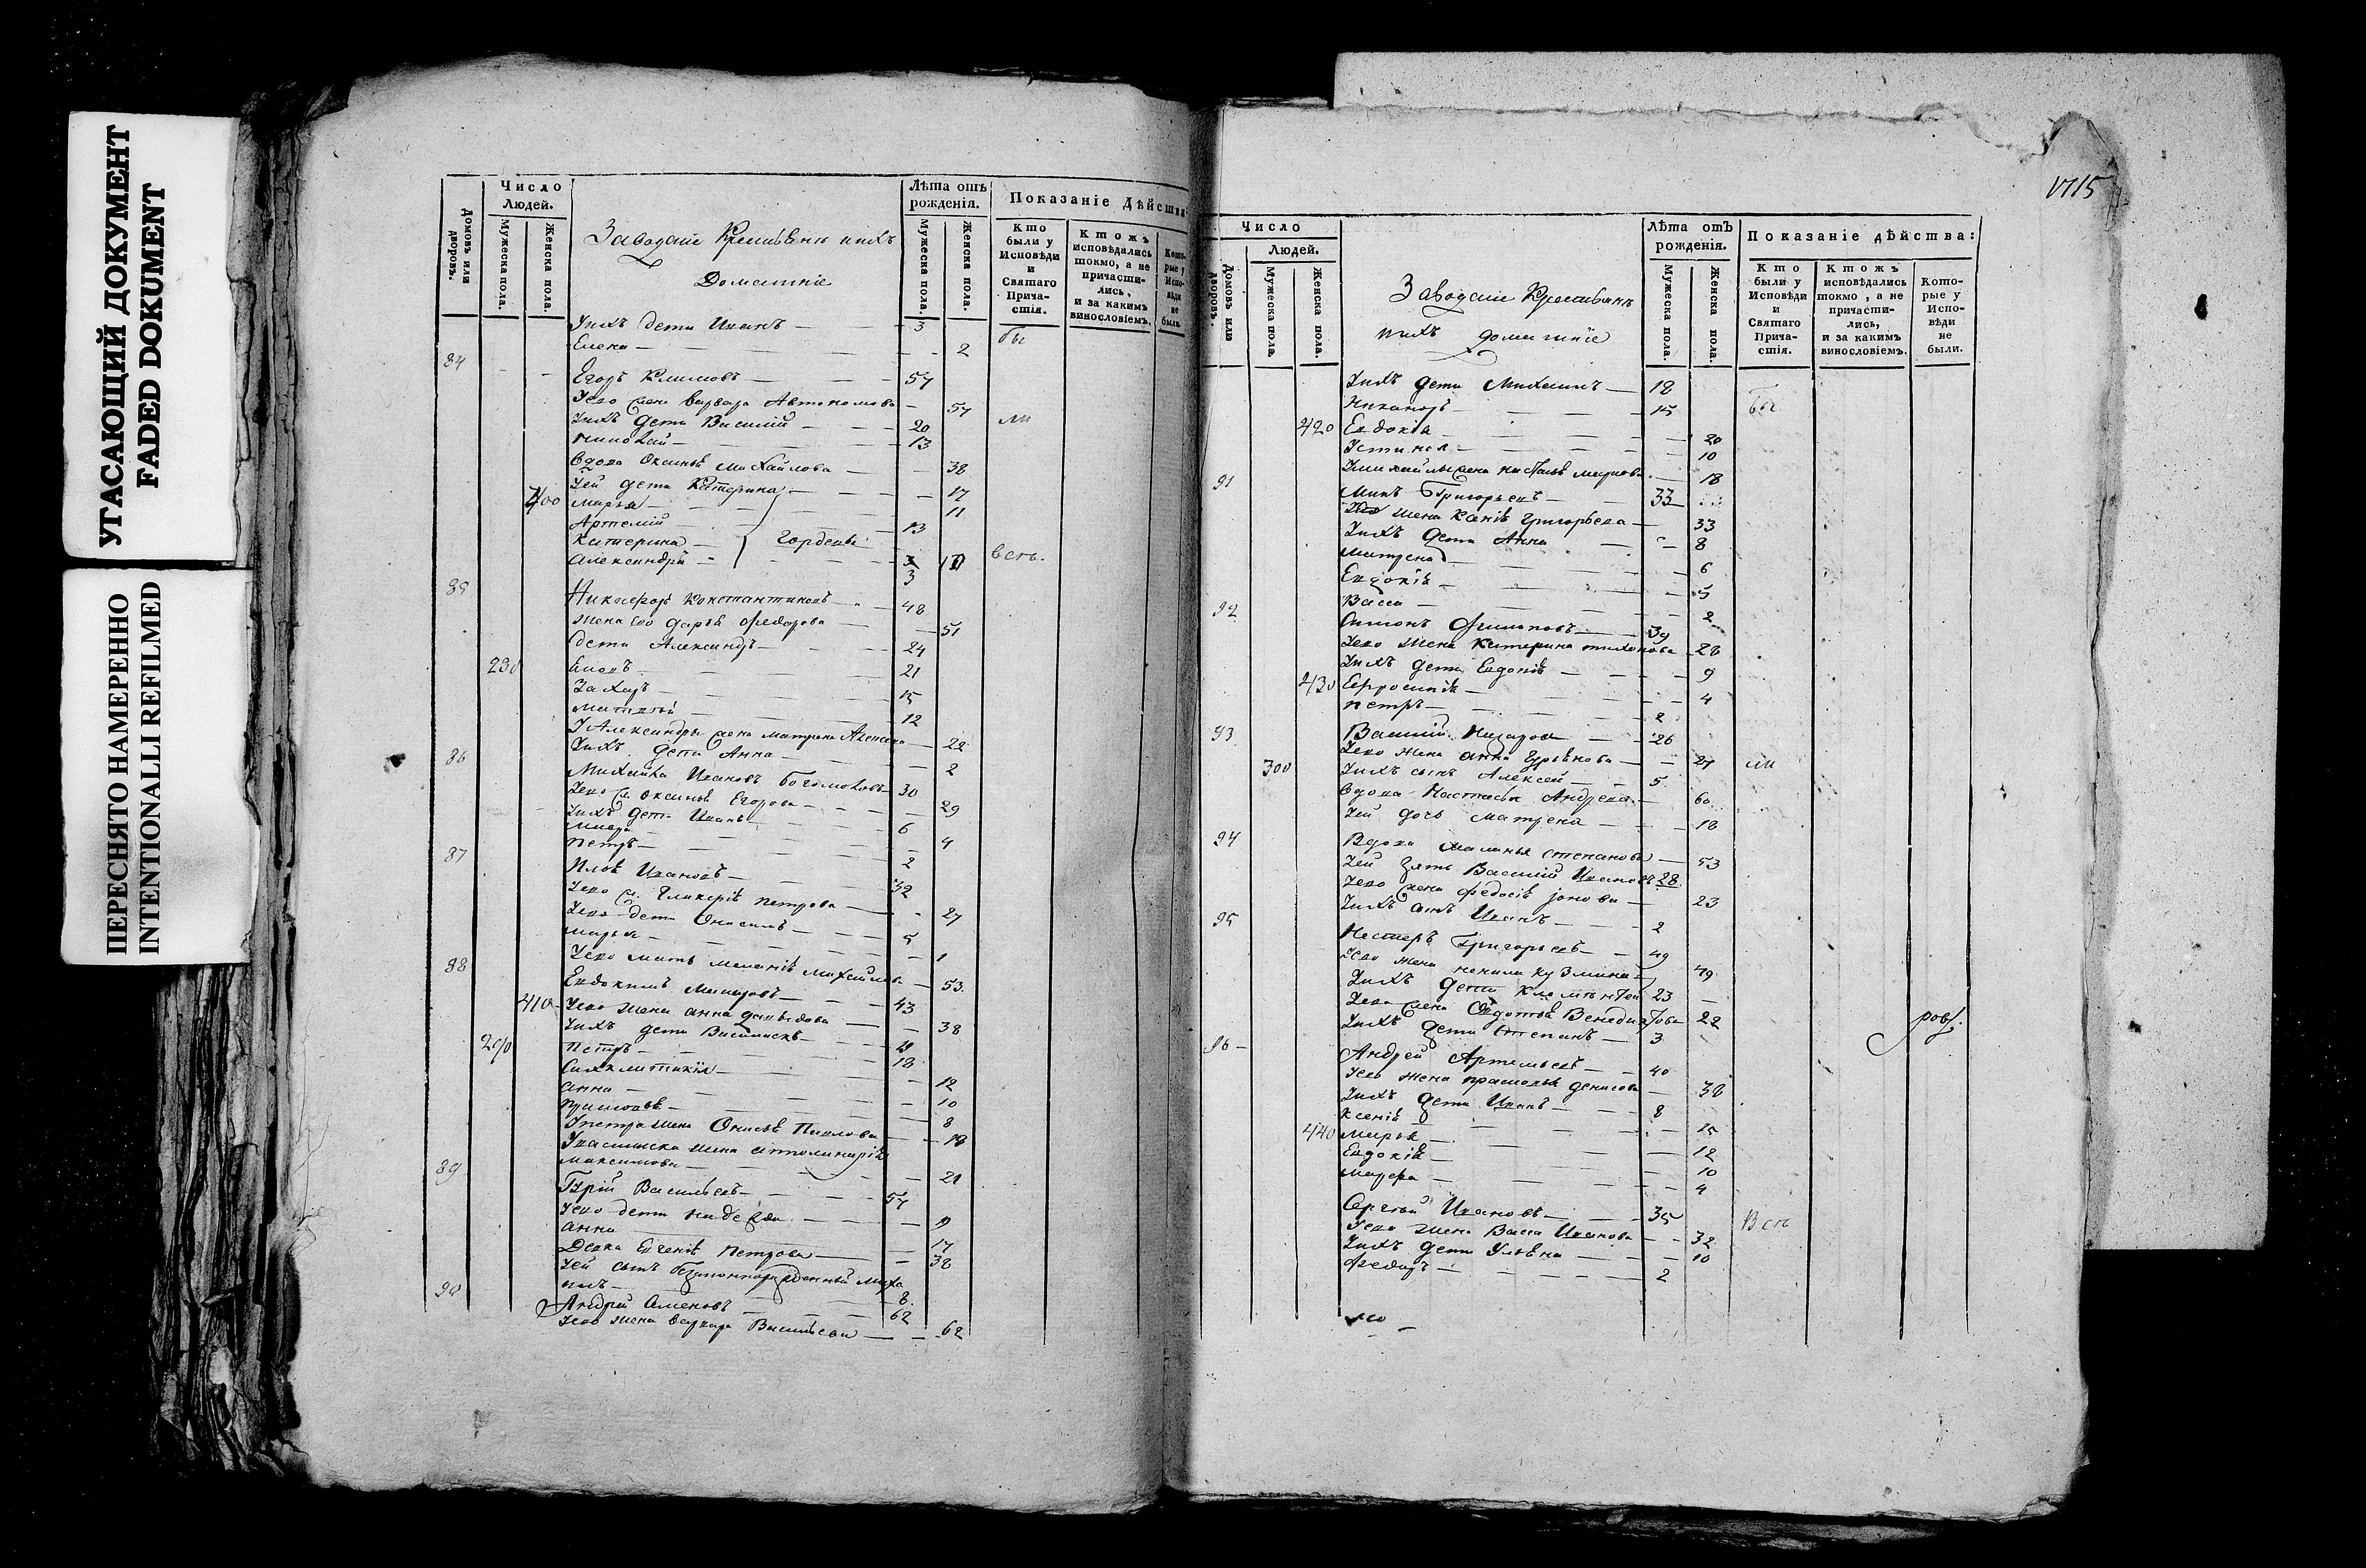 УГАСАЮЩИЙ ДОКУМЕНТ
FADED DOKUMENT
ПЕРЕСНЯТО НАМЕРЕННО
INTENTIONALLI REFILMED
Домовъ или дворовъ.
Число
Людей.
Мужеска пола.
Женска пола.
Заводскіе Крестьяне и ихъ
Домашніе
Лѣта отъ
рожденія.
Мужеска пола.
Женска пола.
Показаніе Дѣйства
Кто
были у
Исповѣди
и
Святаго
Прича-
стія.
Ктожъ
исповѣдались
токмо, а не
причасти-
лись,
и за какимъ
винословіемъ.
Кото-
рые у
Испо-
вѣди
не
были.
Уихъ дети Иванъ 3 бы
Елена 2
84
Егоръ Климовъ 57
Уево жена варвара Автономова 57
Уихъ дети Василий 20 ли
Николай 13
вдова Оксинья Михайлова 38
Уей дети Катерина 17
400 Марья 11
Артемій 13
Катерина Гордеевы
Александръ 3 всѣ.
85
Никифоръ Константиновъ 48
жена ево дарья Федорова 51
дети Александръ 24
280 Енохъ 21
Захаръ 15
Матвей 12
УАлександры жена матрена 22
Уихъ дети Анна 2
86
Михайла Ивановъ Богомоловъ 30
Уево ж. оксинья Егорова 29
Уихъ дети Иванъ 6
4
Петръ 2
87
Иовъ Ивановъ 32
Уево ж. Гликерія Петрова 27
Уево дети Онисимъ 5
Марья 1
Уево мать меланія Михайлова 53
88
Евдокимъ 43
410 Уево жена анна давыдова 38
Уихъ дети
290 Петръ 18
Синклитикія 12
анна 10
8
Упетра жена Онисья Павлова 19
жена аполинарія
максимова 21
89
Гурій Васильевъ 57
Уево дети надежда
анна 17
Девка Евгенія Петрова 38
Уей сынъ беззаконнорожденный Миха
илъ 8
90
Андрей Семеновъ 62
Уево жена варвара Васильева 62
1715
Домовъ или дворовъ.
Число
Людей.
Мужеска пола.
Женска пола.
Заводскіе Крестьянъ
ихъ домашніе
Лѣта отъ
рожденія.
Мужеска пола.
Женска пола.
Показаніе дѣйства:
Кто
были у
Исповѣди
и
Святаго
Прича-
стія.
Ктожъ
исповѣдались
токмо, а не
причасти-
лись,
и за какимъ
винословіемъ.
Кото-
рые у
Испо-
вѣди
не
были.
Уихъ дети Михаилъ 18
Никаноръ 15 бы
420 Евдокія 20
Устинья 10
Умихайлы жена 18
91
Григорьевъ 33
жена Ксенія Григорьева 33
Уихъ дети Анна 8
Матрена 6
Евдокія 5
Васса 2
92
Филиповъ 39
Уево жена катерина тихонова 28
Уихъ дети Евдокія 9
430 Ефросинія 4
петръ 2
93
Василий Назаровъ 26
Уево жена анна 27 ли
300 Уихъ сынъ Алексей 5
вдова Настасья Андреева 60
Уей дочь матрена 18
94
Вдова маланья степанова 53
Уей зять Василий Ивановъ 28
Уево жена федосья 23
Уихъ сынъ Иванъ 2
95
Нестеръ Григорьевъ 49
Уево жена ненила кузмина 49
Уихъ дети Клементей 23
Уево жена Федотья Венедиктова 22
Уихъ дети Степанъ 3 ров.
96
Андрей Артемьевъ 40
Уево жена прасковья денисова 38
Уихъ дети Иванъ 8
Ксенія 15
440 Марья 12
Евдокія 10
Марфа 4
Сергей Ивановъ 35 Всѣ
Уево жена Васса Иванова 32
Уихъ дети Ульяна 10
Федоръ 2